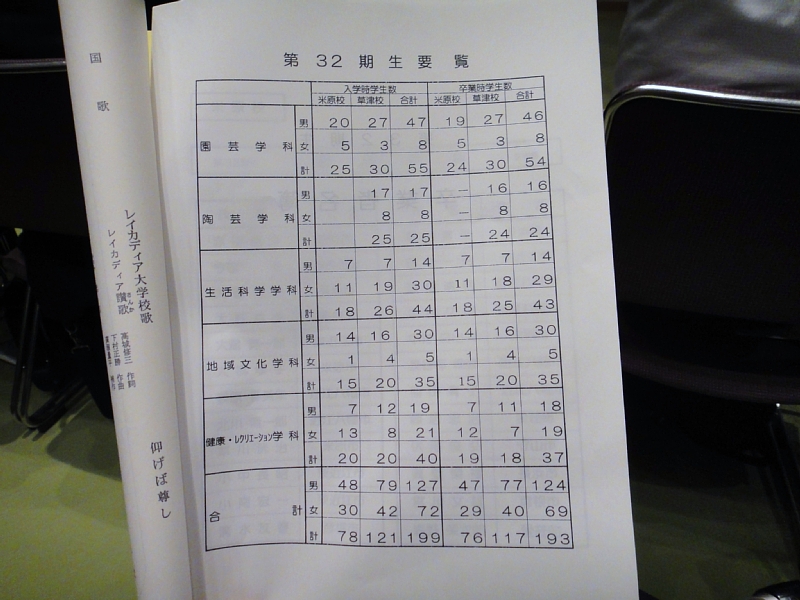 国歌
レイカディア大学校歌
レイカディア讃歌
さんか
高城修三 作詞
下村正勝 作曲
仰げば尊し
第 32 期 生 要 覧
入学時学生数 卒業時学生数
米原校 草津校 合計 米原校 草津校 合計
園芸学科 男 20 27 47 19 27 46
女 5 3 8 5 3 8
計 25 30 55 24 30 54
陶芸学科 男 17 17 ー 16 16
女 8 8 ー 8 8
計 25 25 ー 24 24
生活科学学科 男 7 7 14 7 7 14
女 11 19 30 11 18 29
計 18 26 44 18 25 43
地域文化学科 男 14 16 30 14 16 30
女 1 4 5 1 4 5
計 15 20 35 15 20 35
健康・レクリエーション学科 男 7 12 19 7 11 18
女 13 8 21 12 7 19
計 20 20 40 19 18 37
合計 男 48 79 127 47 77 124
女 30 42 72 29 40 69
計 78 121 199 76 117 193